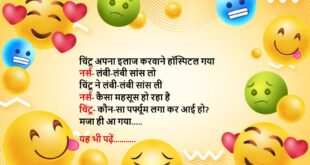 चिंटू अपना इलाज करवाने हॉस्पिटल गया
नर्स- लंबी-लंबी सांस लो
चिंटू ने लंबी-लंबी सांस ली
नर्स- कैसा महसूस हो रहा है
चिंटू- कौन-सा पर्फ्यूम लगा कर आई हो?
मजा ही आ गया.....
यह भी पढ़ें...........